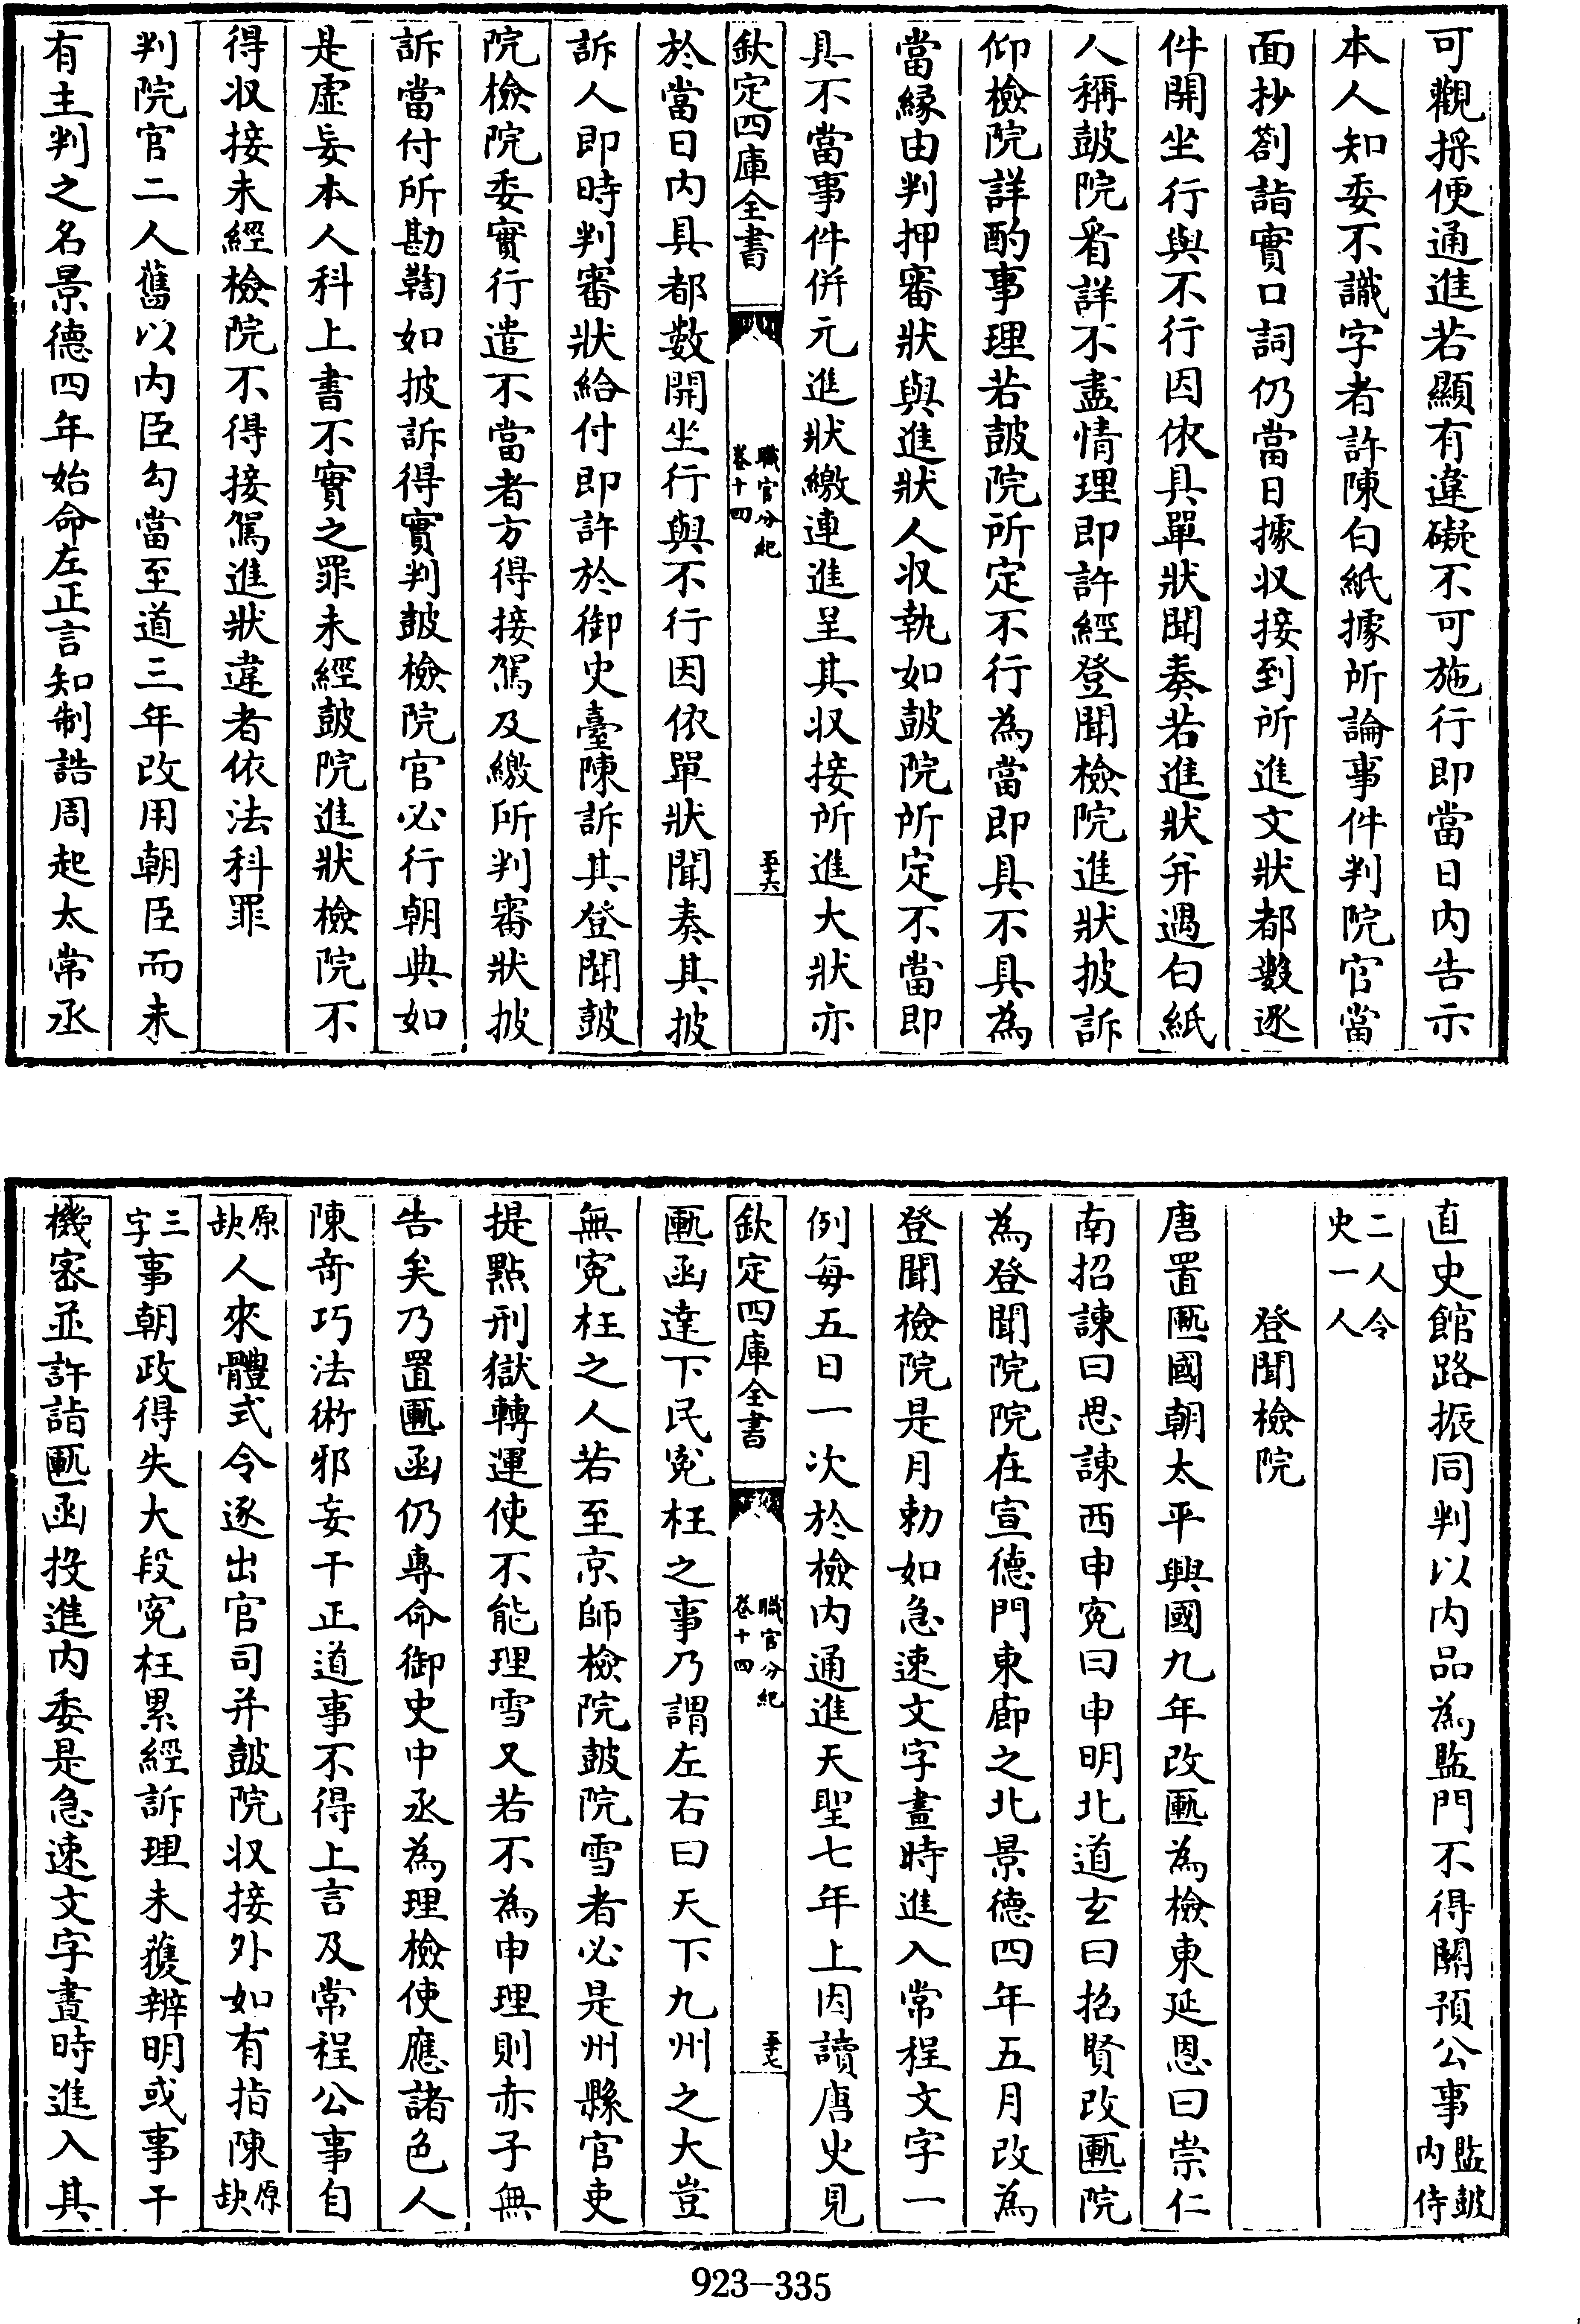 可觀採便通進若顯有違礙不可施行即當日內告示
本人知委不識字者許陳白紙據所論事件判院官當
面抄劄詣實口詞仍當日據収接到所進文狀都數逐
件開坐行與不行因依具單狀聞奏若進狀并遇白紙
人稱鼓院看詳不盡情理即許經登聞檢院進狀披訴
仰檢院詳酌事理若鼓院所定不行為當即具不具為
當緣由判押審狀與進狀人収執如鼓院所定不當即
具不當事件併元進狀繳連進呈其収接所進大狀亦
欽定四庫全書
職官分紀
卷十四
五十六
於當日內具都數開坐行與不行因依單狀聞奏其披
訴人即時判審狀給付即許於御史臺陳訴其登聞鼓
院檢院委實行遣不當者方得接駕及繳所判審狀披
訴當付所勘鞫如披訴得實判鼓檢院官必行朝典如
是虛妄本人科上書不實之罪未經鼓院進狀檢院不
得収接未經檢院不得接駕進狀違者依法科罪
判院官二人舊以內臣勾當至道三年改用朝臣而未
有主判之名景德四年始命左正言知制誥周起太常丞
直史館路振同判以內品為監門不得關預公事監鼓內侍
二人令史一人
登聞檢院
唐置匭國朝太平興國九年改匭為檢東延恩曰崇仁
南招諫曰思諫西申冤曰申明北道玄曰招賢改匭院
為登聞院院在宣德門東廊之北景德四年五月改為
登聞檢院是月勅如急速文字晝時進入常程文字一
例每五日一次於檢內通進天聖七年上因讀唐史見
欽定四庫全書
職官分紀
卷十四
五十七
匭函達下民冤枉之事乃謂左右曰天下九州之大豈
無冤枉之人若至京師檢院鼓院雪者必是州縣官吏
提點刑獄轉運使不能理雪又若不為申理則赤子無
告矣乃置匭函仍專命御史中丞為理檢使應諸色人
陳竒巧法術邪妄干正道事不得上言及常程公事自
原缺人來體式令逐出官司并鼓院収接外如有指陳原缺
三字事朝政得失大段冤枉累經訴理未獲辨明或事干
機密並許詣匭函投進內委是急速文字晝時進入其
923-335